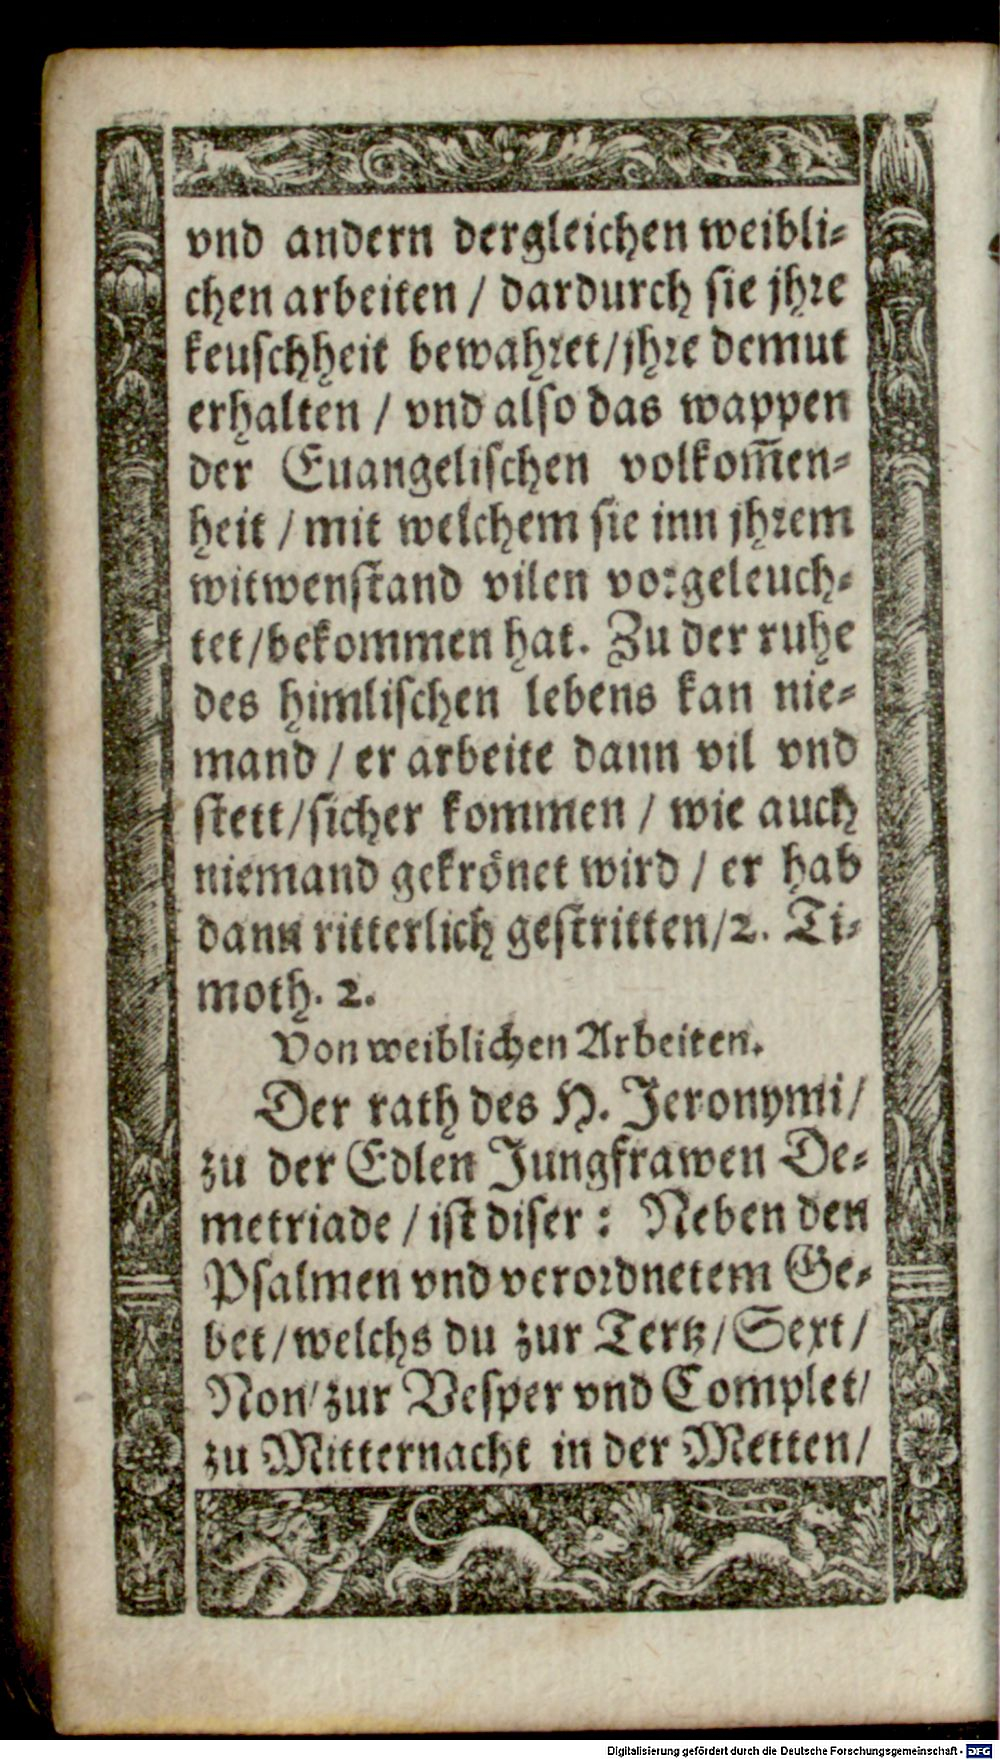 vnd andern dergleichen weibli-
chen arbeiten / dardurch sie jhre
keuschheit bewahret/jhre demut
erhalten / vnd also das wappen
der Euangelischen volkom̃en-
heit / mit welchem sie inn jhrem
witwenstand vilen vorgeleuch-
tet/bekommen hat. Zu der ruhe
des himlischen lebens kan nie-
mand / er arbeite dann vil vnd
stett/sicher kommen / wie auch
niemand gekrönet wird / er hab
dann ritterlich gestritten/2. Ti-
moth. 2.
Von weiblichen Arbeiten.
Der rath des H. Jeronymi/
zu der Edlen Jungfrawen De-
metriade / ist diser : Neben den
Psalmen vnd verordnetem Ge-
bet/welchs du zur Tertz/Sext/
Non/zur Vesper vnd Complet/
zu Mitternacht in der Metten/
Digitalisierung gefördert durch die Deutsche Forschungsgemeinschaft - DFG